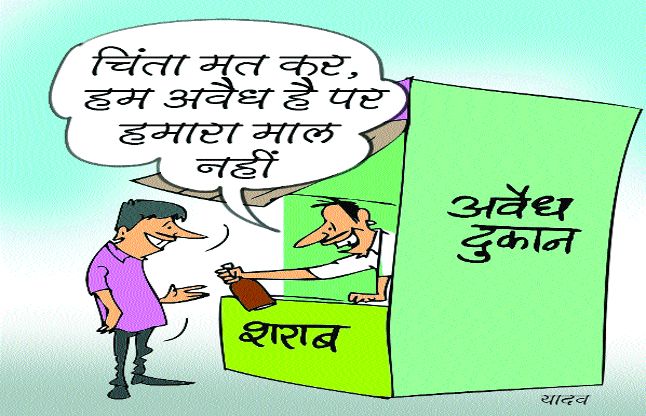 चिंता मत कर,
हम अवैध है पर
हमारा माल
नहीं
अवैध
दुकान
शराब
यादव